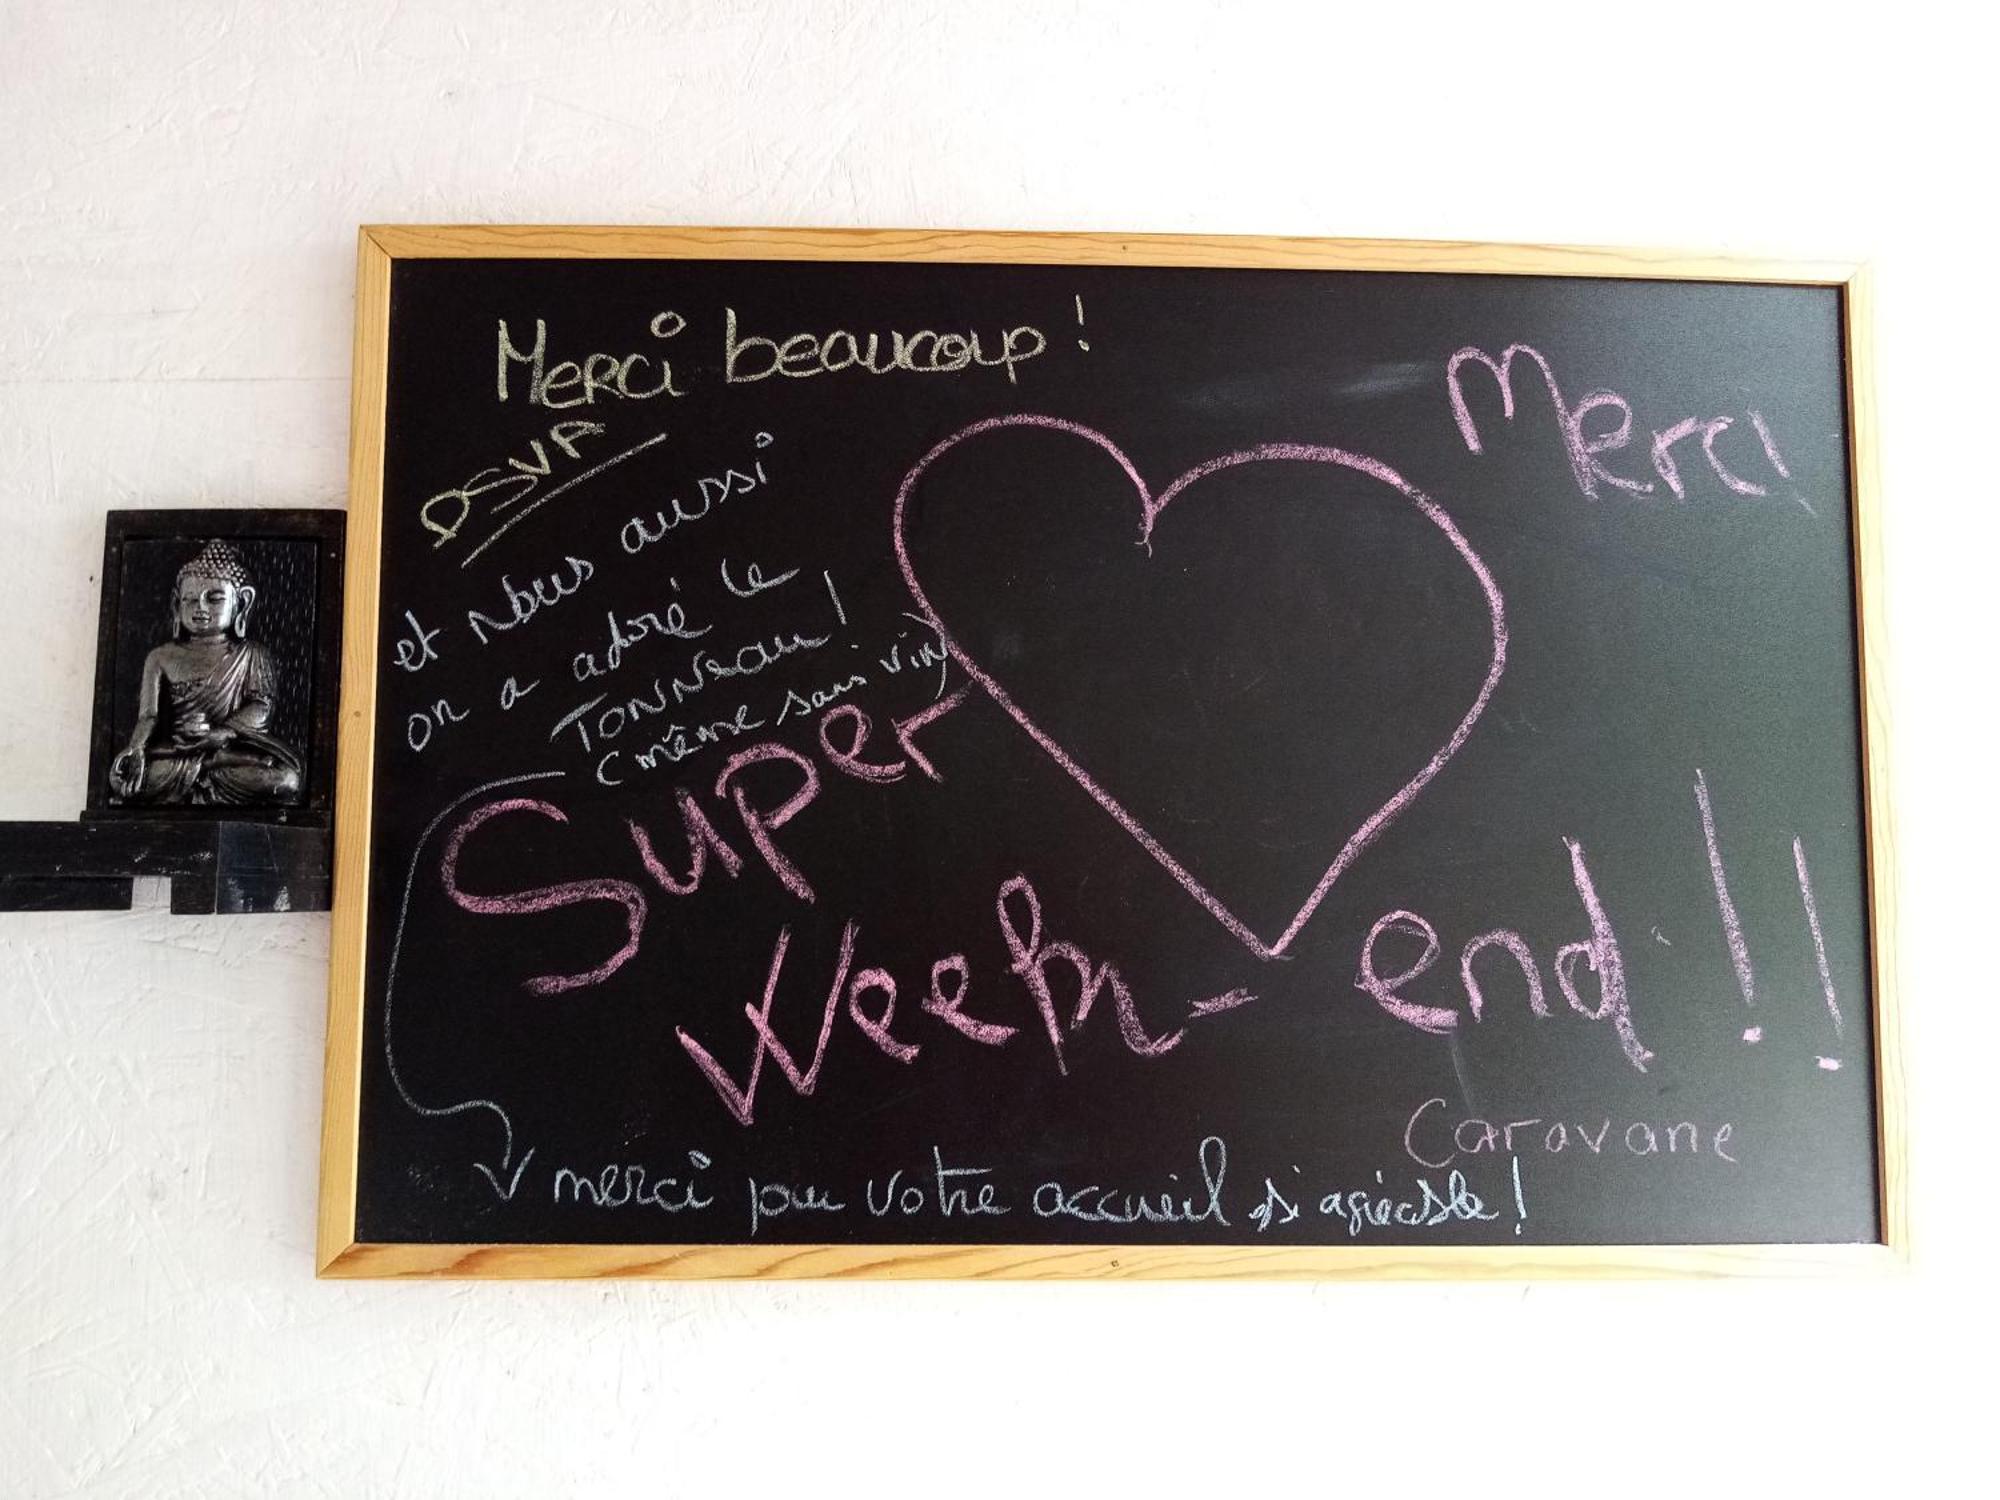 Merci beaucoup !
DSVP
et Nous aussi
on a adoré le
TONNeau !
(même sans vin)
Merci
Super
Week-end !!
Caravane
merci pour votre accueil si agréable !